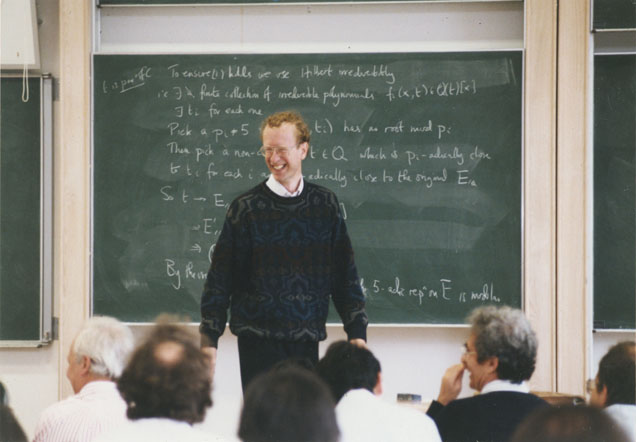 t is
To ensure (i) holds we use Hilbert irreducibility
i.e. ∃ a finite collection of irreducible polynomials f_i(x,t) ∈ Q(t)[x]
∃ t_i for each one
Pick a p_i ≠ 5 t_i) has no root mod p_i
Then pick a non- t ∈ Q which is p_i-adically close
to t_i for each i a adically close to the original E
So t → E
⇒ E'
⇒
By 5-adic repⁿ on E is modular